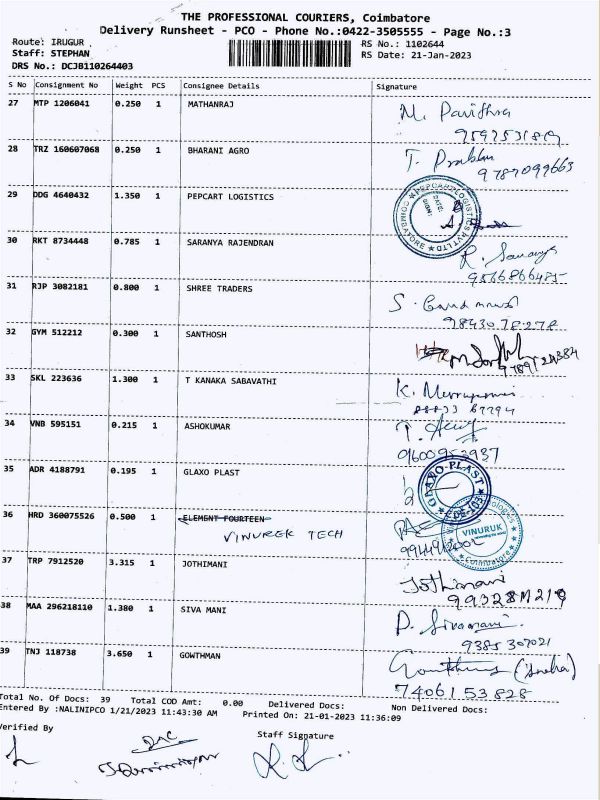 THE PROFESSIONAL COURIERS, Coimbatore
Delivery Runsheet - PCO - Phone No.:0422-3505555 - Page No.:3
Route: IRUGUR RS No.: 1102644
Staff: STEPHAN RS Date: 21-Jan-2023
DRS No.: DCJB110264403
S No Consignment No Weight PCS Consignee Details Signature
27 MTP 1206041 0.250 1 MATHANRAJ M. Pavithra
28 TRZ 160607068 0.250 1 BHARANI AGRO T. Prabhu
9787099663
29 DDG 4640432 1.350 1 PEPCART LOGISTICS
PEPCART LOGISTICS PVT LTD COIMBATORE
DATE:
SIGN:
30 RKT 8734448 0.785 1 SARANYA RAJENDRAN R. Saranya
9566866485
31 RJP 3082181 0.800 1 SHREE TRADERS
98430 78278
32 GYM 512212 0.300 1 SANTHOSH
33 SKL 223636 1.300 1 T KANAKA SABAVATHI
34 VNB 595151 0.215 1 ASHOKUMAR
35 ADR 4188791 0.195 1 GLAXO PLAST
GLAXO-PLAST
CBE-103
36 HRD 360075526 0.500 1 ELEMENT FOURTEEN
VINUREK TECH
VINURUK
Coimbatore
37 TRP 7912520 3.315 1 JOTHIMANI Jothimani
38 MAA 296218110 1.380 1 SIVA MANI P. Sivamani
9385307021
39 TNJ 118738 3.650 1 GOWTHMAN
7406153828
Total No. Of Docs: 39 Total COD Amt: 0.00 Delivered Docs: Non Delivered Docs:
Entered By :NALINIPCO 1/21/2023 11:43:30 AM Printed On: 21-01-2023 11:36:09
Verified By Staff Signature